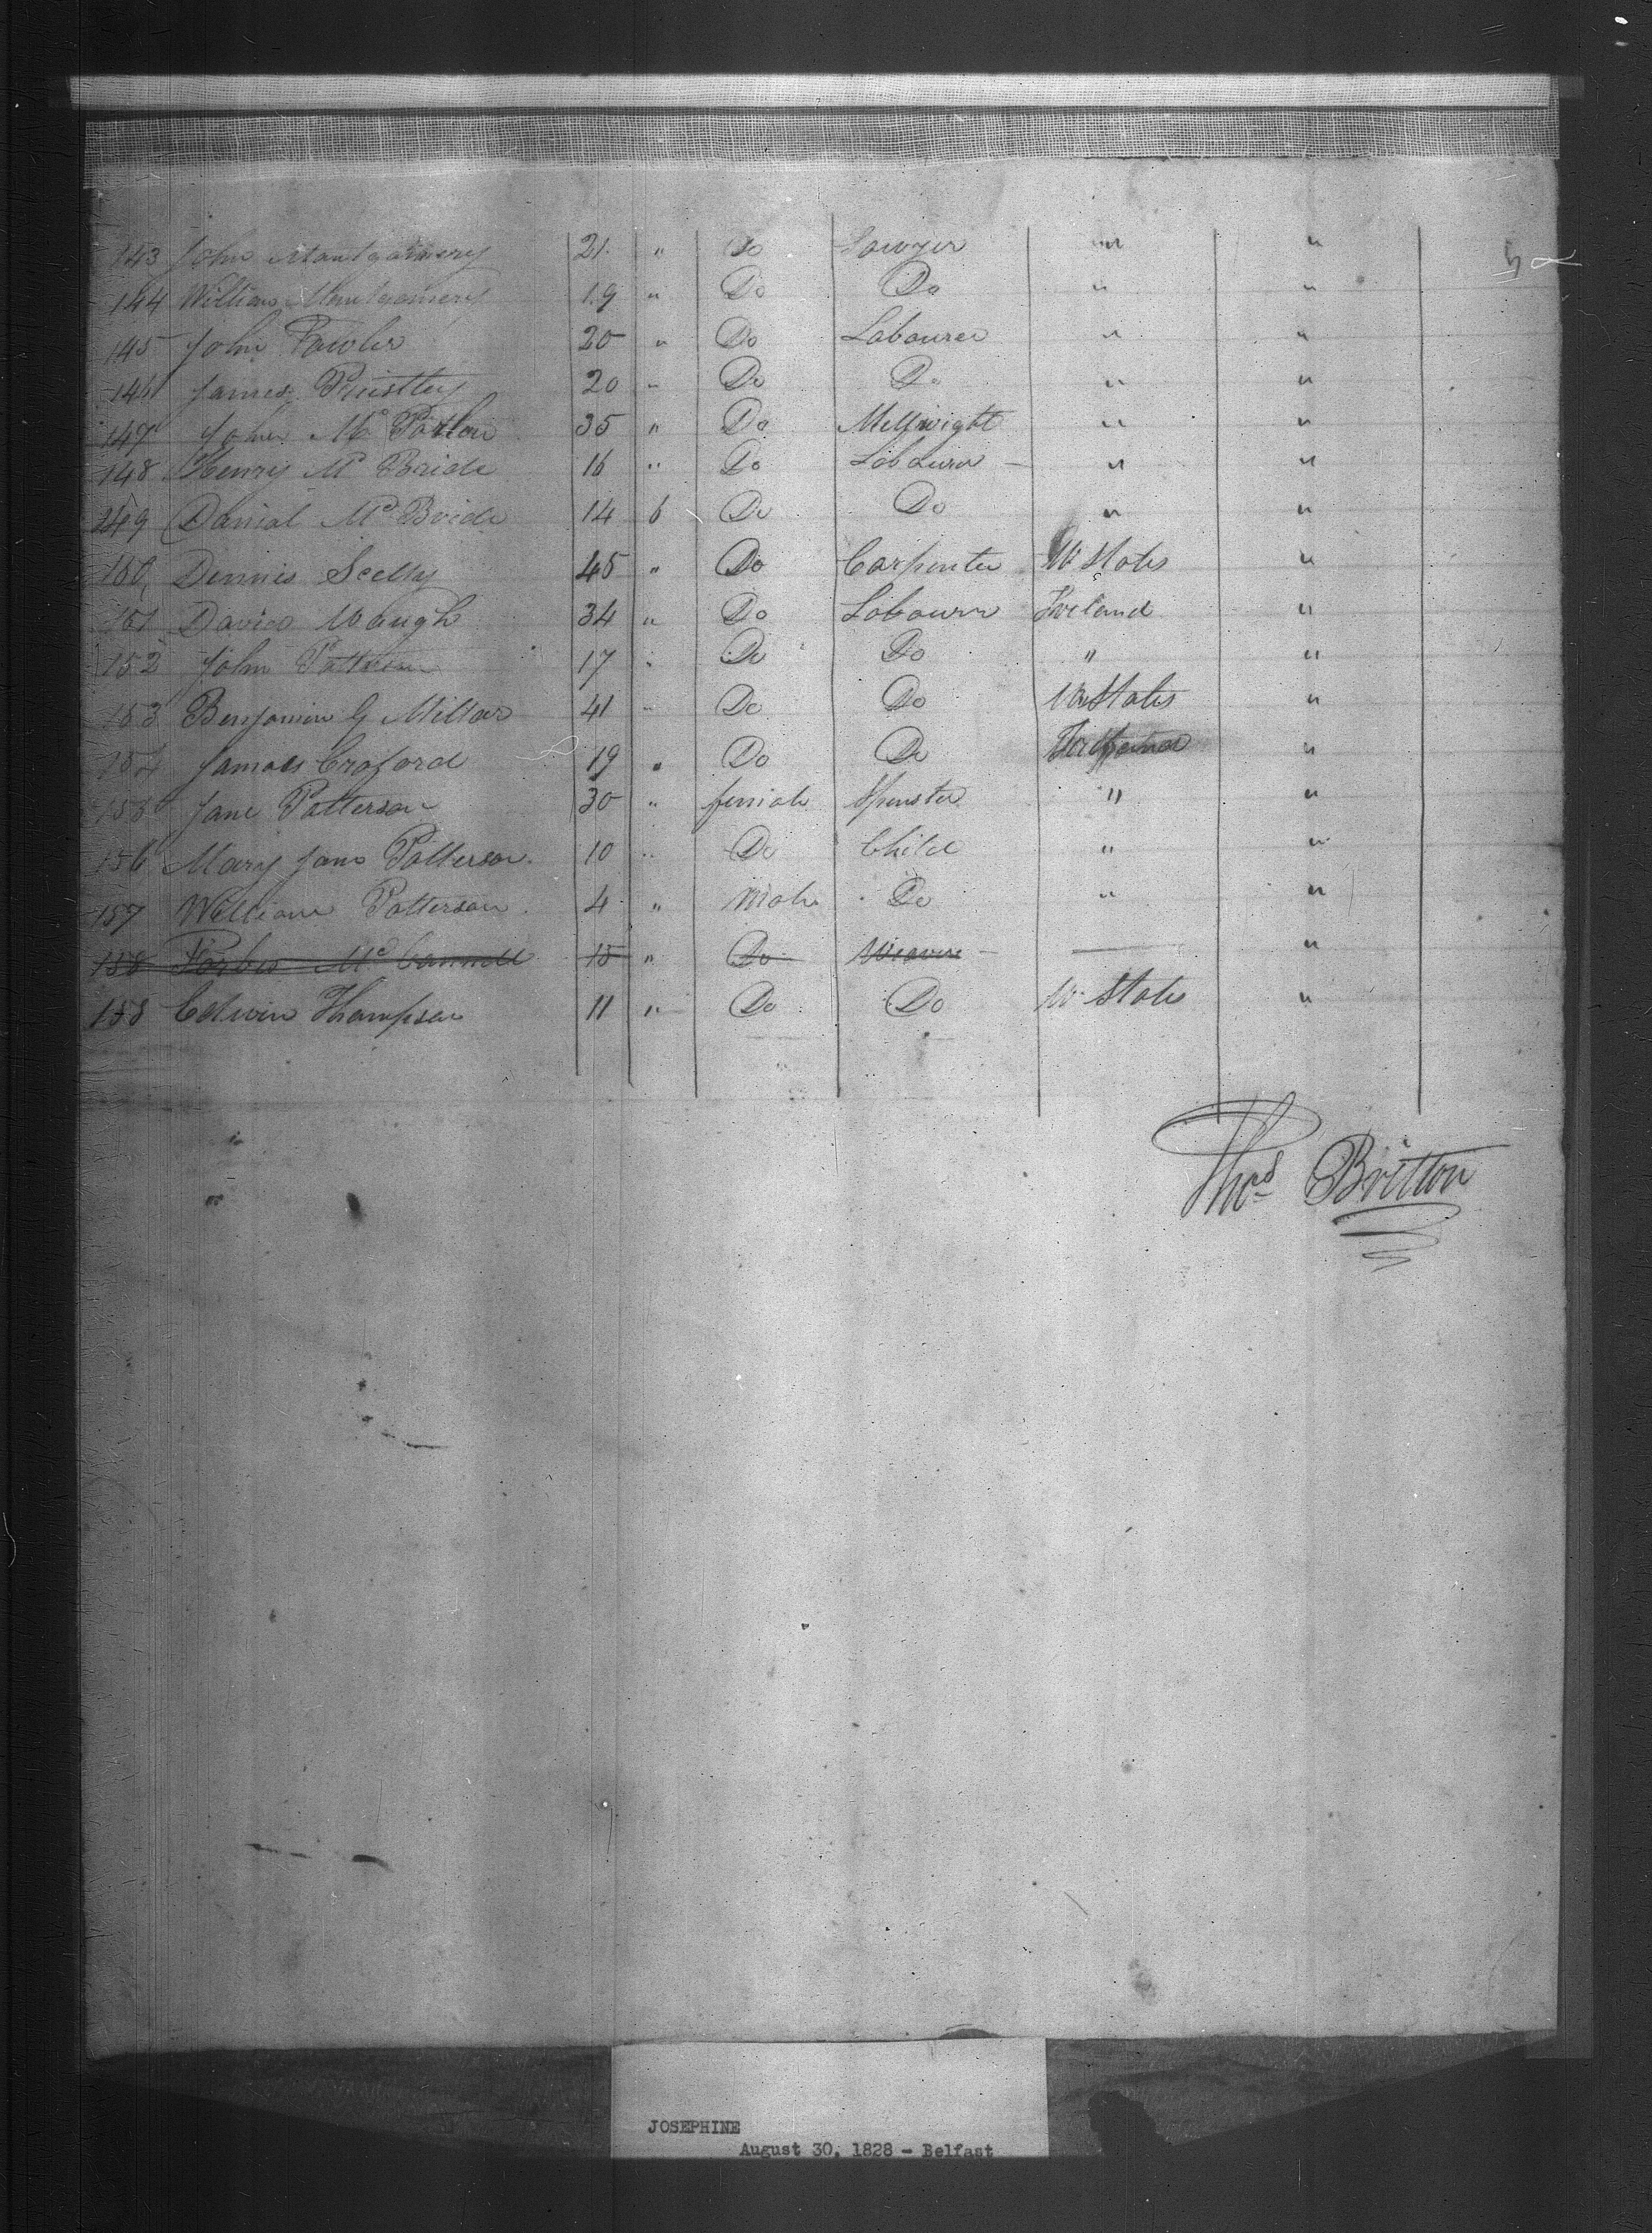 143 John Montgomery 21 " Do Sawyer " "
144 William Montgomery 19 " Do Do " "
145 John Fowler 20 " Do Labourer " "
146 James Priestley 20 " Do Do " "
147 John Mc 35 " Do Millwright " "
148 Henry Mc Bride 16 " Do Labourer " "
149 Danial Mc Bride 14 6 Do Do " "
150 Dennis Scelly 45 " Do Carpenter U States "
151 David Waugh 34 " Do Labourer Ireland "
152 John Patterson 17 " Do Do " "
153 Benjamin G Millar 41 " Do Do U States "
154 James Croford 19 " Do Do "
155 Jane Patterson 30 " female Spinster " "
156 Mary Jane Patterson 10 " Do Child " "
157 William Patterson 4 " Male Do " "
158 Forbes Mc Connell 15 " Do Weaver — "
158 Edwin Thompson 11 " Do Do U States "
Thos Britton
JOSEPHINE
August 30, 1828 - Belfast